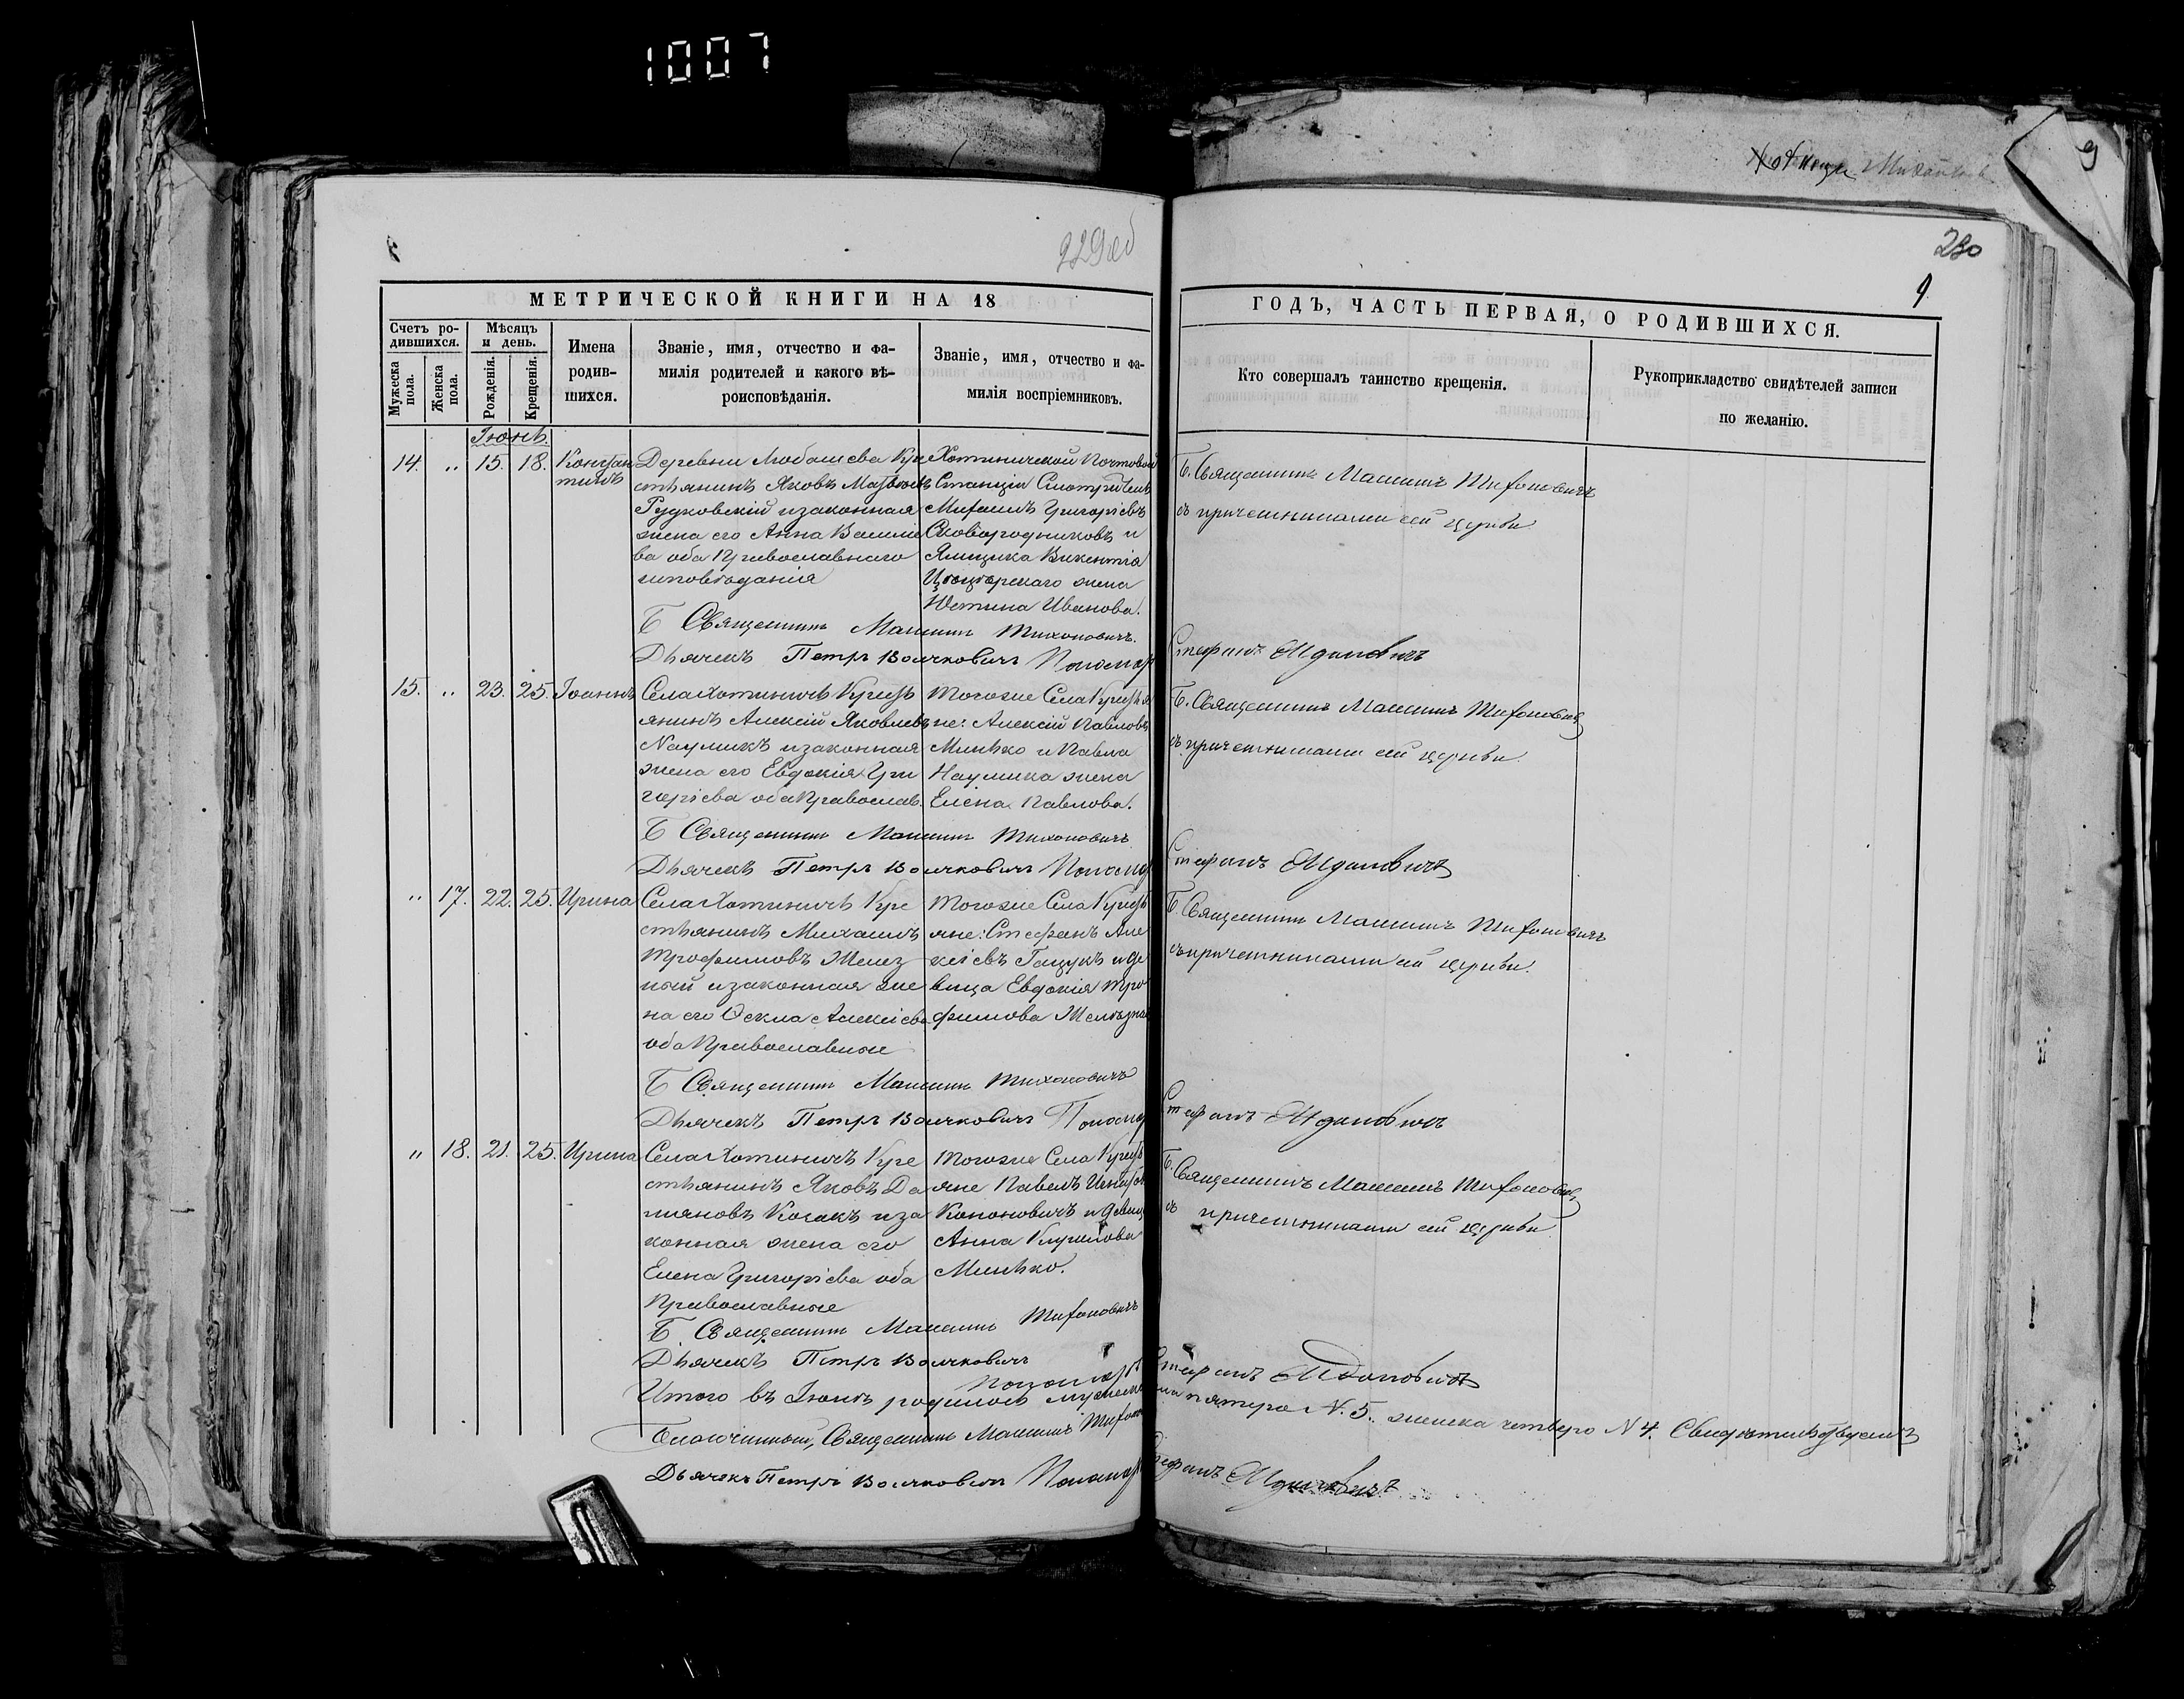 1007
9
229 об
230
9
МЕТРИЧЕСКОЙ КНИГИ НА 18
ГОДЪ, ЧАСТЬ ПЕРВАЯ, О РОДИВШИХСЯ.
Счетъ ро-
дившихся.
Мужеска
пола.
Женска
пола.
Мѣсяцъ
и день.
Рожденія.
Крещенія.
Имена
родив-
шихся.
Званіе, имя, отчество и фа-
милія родителей и какого вѣ-
роисповѣданія.
Званіе, имя, отчество и фа-
милія воспріемниковъ.
Кто совершалъ таинство крещенія.
Рукоприкладство свидѣтелей записи
по желанію.
Іюнь.
14. „ 15. 18. Констан
тинъ
Деревни Любашева Кре
стьянинъ Яковъ
Рудковскій и законная
жена его Анна Василіе
ва оба Православнаго
исповѣданія
Хотиничской Почтовой
Станціи Смотритель
Михаилъ Григорьевъ
Сковородниковъ и
Ямщика Викентія
жена
Юстина Иванова.
Б. Священникъ Максимъ Тихоновичъ
съ причетниками сей церкви
Б Священникъ Максимъ Тихоновичъ.
Дьячекъ Петръ Воичковичъ Пономарь Стефанъ Ждановичъ
15. „ 23. 25. Іоаннъ
Села Хотиничъ Кресть
янинъ Алексій Яковлевъ
Наумикъ и законная
жена его Евдокія Гри
горіева оба Православ.
Тогоже Села Крестья
не: Алексій Павловъ
Минько и Павла
Наумика жена
Елена Павлова.
Б. Священникъ Максимъ Тихоновичъ
съ причетниками сей церкви
Б Священникъ Максимъ Тихоновичъ
Дьячекъ Петръ Воичковичъ Пономарь Стефанъ Ждановичъ
„ 17. 22. 25. Ирина
Села Хотиничъ Кре
стьянинъ Михаилъ
Трофимовъ Желез
ный и законная же
на его Ѳекла Алексіева
оба Православные
Тогоже Села Кресть
яне: Стефанъ Але
ксіевъ Гацукъ и де
вица Евдокія Тро
фимова Железная
Б. Священникъ Максимъ Тихоновичъ
съ причетниками сей церкви.
Б Священникъ Максимъ Тихоновичъ
Дьячекъ Петръ Воичковичъ Пономарь Стефанъ Ждановичъ
„ 18. 21. 25. Ирина
Села Хотиничъ Кре
стьянинъ Яковъ Да
міановъ Козакъ и за
конная жена его
Елена Григоріева оба
Православные
Тогоже Села Кресть
яне Павелъ
Кононовичъ и девица
Анна
Минько.
Б. Священникъ Максимъ Тихоновичъ
съ причетниками сей церкви
Б. Священникъ Максимъ Тихоновичъ
Дьячекъ Петръ Воичковичъ
Пономарь Стефанъ Ждановичъ
Итого въ Іюнѣ родилось мужеска пятеро N. 5. женска четверо N 4.
Благочинный, Священникъ Максимъ Тихонович
Дьячекъ Петръ Воичковичъ Пономарь Стефанъ Ждановичъ